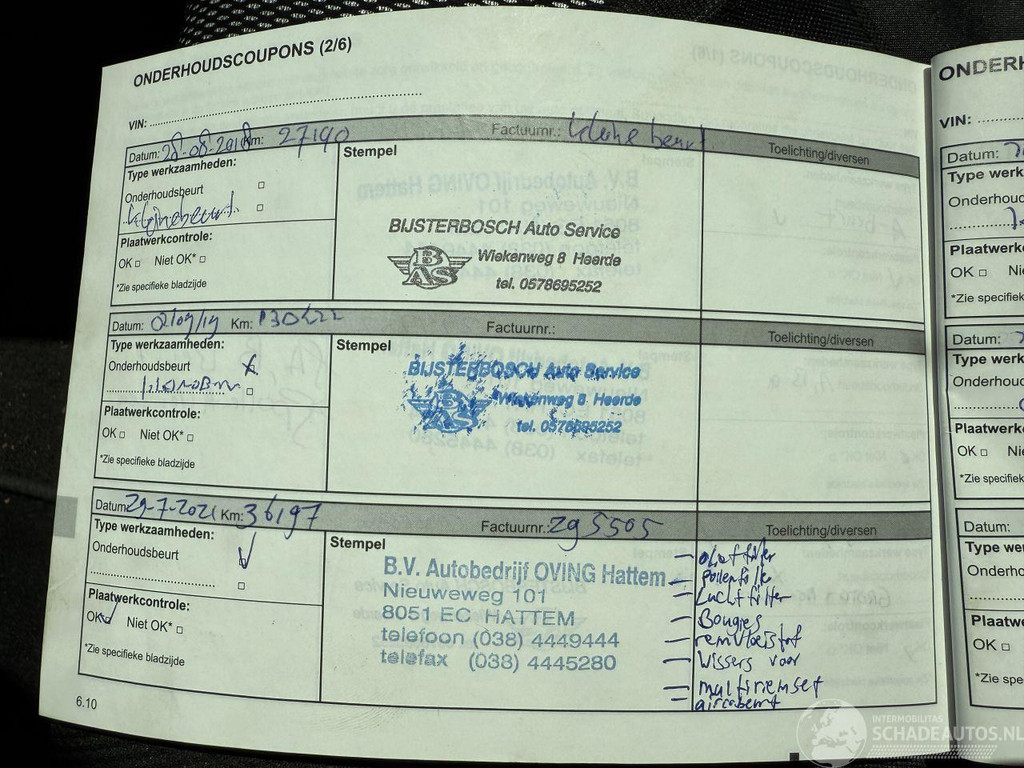 ONDERHOUDSCOUPONS (2/6)
VIN:
Datum: 28-08-2018 Km: 27190 Factuurnr.: kleine beurt Toelichting/diversen
Type werkzaamheden:
Stempel
Onderhoudsbeurt
kleine beurt
Plaatwerkcontrole:
OK Niet OK*
*Zie specifieke bladzijde
BIJSTERBOSCH Auto Service
BAS
Wiekenweg 8 Heerde
tel. 0578695252
Datum: Km: Factuurnr.: Toelichting/diversen
Type werkzaamheden:
Stempel
Onderhoudsbeurt
Plaatwerkcontrole:
OK Niet OK*
*Zie specifieke bladzijde
BIJSTERBOSCH Auto Service
BAS
Wiekenweg 8 Heerde
tel. 0578695252
Datum: 29-7-2021 Km: 36197 Factuurnr.: 295505 Toelichting/diversen
Type werkzaamheden:
Stempel
Onderhoudsbeurt
Plaatwerkcontrole:
OK Niet OK*
*Zie specifieke bladzijde
B.V. Autobedrijf OVING Hattem
Nieuweweg 101
8051 EC HATTEM
telefoon (038) 4449444
telefax (038) 4445280
- oliefilter
- pollenfilter
- Luchtfilter
- Bougies
- remvloeistof
- Wissers voor
- multiriemset
- aircobeurt
6.10
ONDERH
VIN:
Datum:
Type werk
Onderhoud
Plaatwerk
OK Ni
*Zie specifiek
Datum:
Type werk
Onderhoud
Plaatwerk
OK Nie
*Zie specifiek
Datum:
Type wer
Onderho
Plaatwe
OK
*Zie spe
INTERMOBILITAS
SCHADEAUTOS.NL